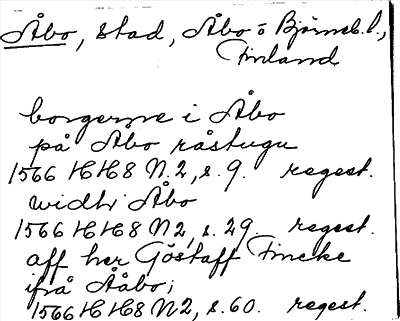 Åbo, stad, Åbo o Björneb. l.,
Finland
borgerne i Åbo
på Åbo råstugu
1566 HH8 N.2, s. 9. regest.
widh Åbo
1566 HH8 N2, s. 29. regest.
aff her Göstaff Fincke
ifrå Ååbo;
1566 HH8 N2, s. 60. regest.